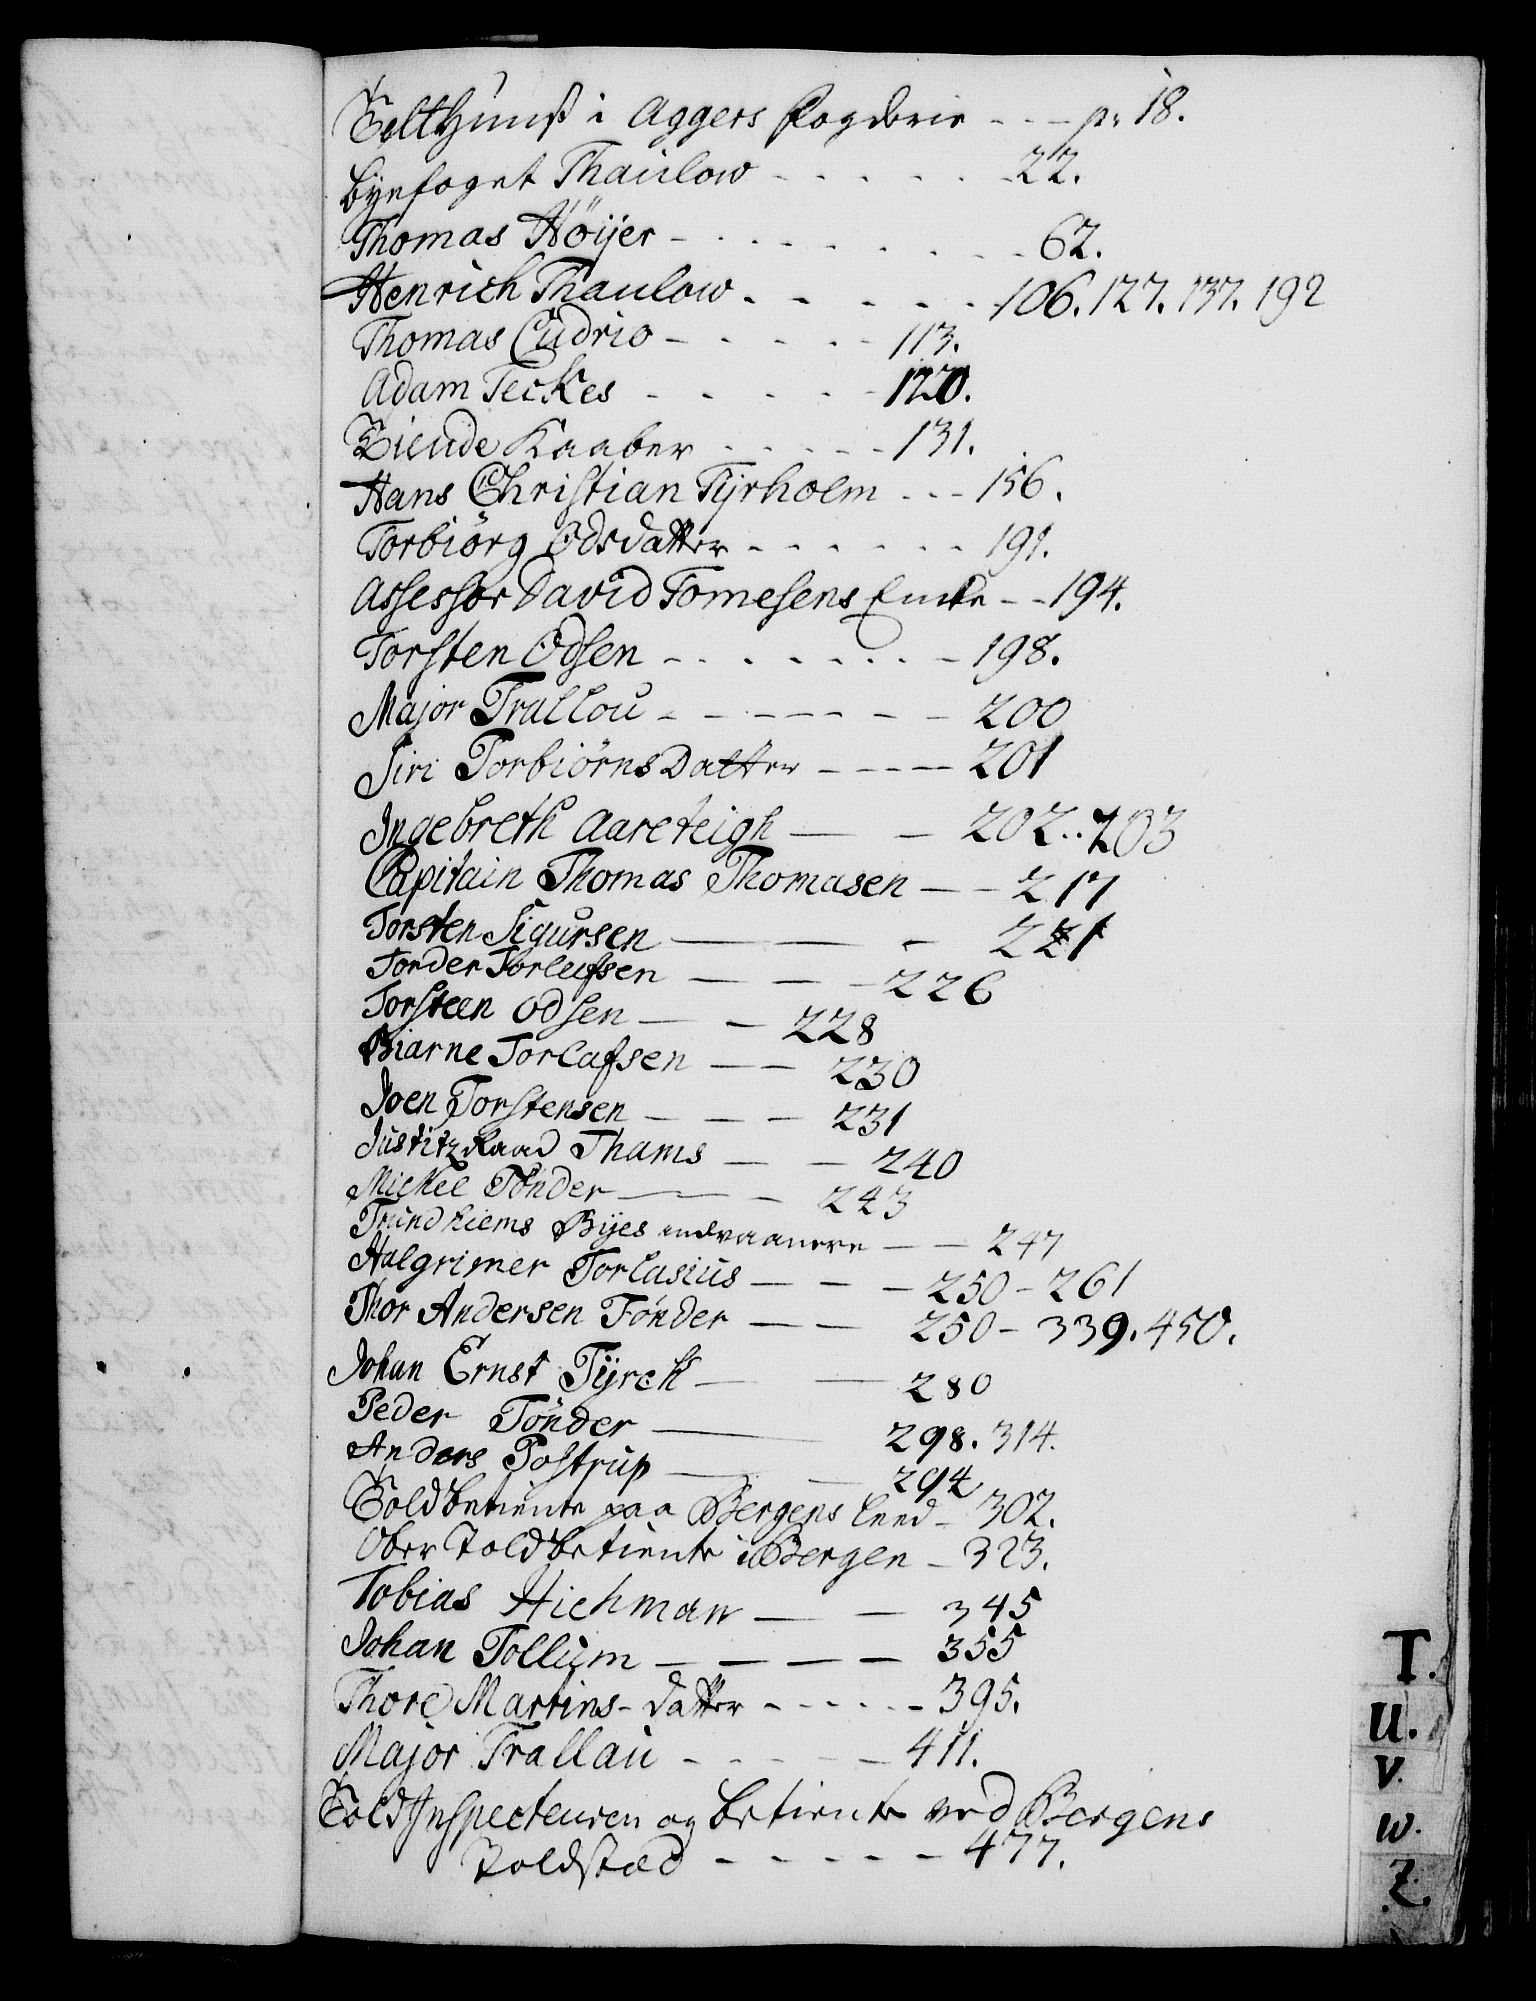 Telthuuß i Aggers Fogderie - - - p: 18.
Byefoget Thaulow - - - - - - 22.
Thomas Höijer - - - - - - - - 62.
Henrich Thaulow - - - - - - 106. 127. 137. 192
Thomas Cudrio - - - - - 113.
Adam Teckes - - - - - 120.
Tiende Kaaber - - - - - 131.
Hans Christian Tyrholm - - - 156.
Torbiörg Odsdatter - - - - - - 191.
Assessor David Tomesens Encke - - 194.
Torsten Odsen - - - - - - - 198.
Major Trallou - - - - - - - 200
Siri Torbiörns Datter - - - - 201
Ingebreth Aareteigh - - 202..203
Capitain Thomas Thomasen - - 217
Torsten Sigursen - - - 221
Torder Torlefsen - - - 226
Torsteen Odsen - - 228
Biarne Torlafsen - - 230
Joen Torstensen - - - 231
Justitz Raad Thams - - 240
Mickel Tönder - - - 243
Trundhiems Byes indvaanere - - 247
Halgrimer Torlasius - - - 250 - 261
Thor Andersen Tönder - - 250 - 339. 450.
Johan Ernst Tyrck - - 280
Peder Tönder - 298. 314.
Anders Tostrup - - 294
Toldbetiente paa Bergens Leed - 302.
Ober Toldbetiente i Bergen - 323.
Tobias Hichman - - 345
Johan Tollum - - - - 355
Thore Martins-datter - - - - - 395.
Major Trallau - - - - - 411.
Told Inspecteuren og betiente ved Bergens
Toldstæd - - - - - - 477.
T.
U.
V.
W.
Z.